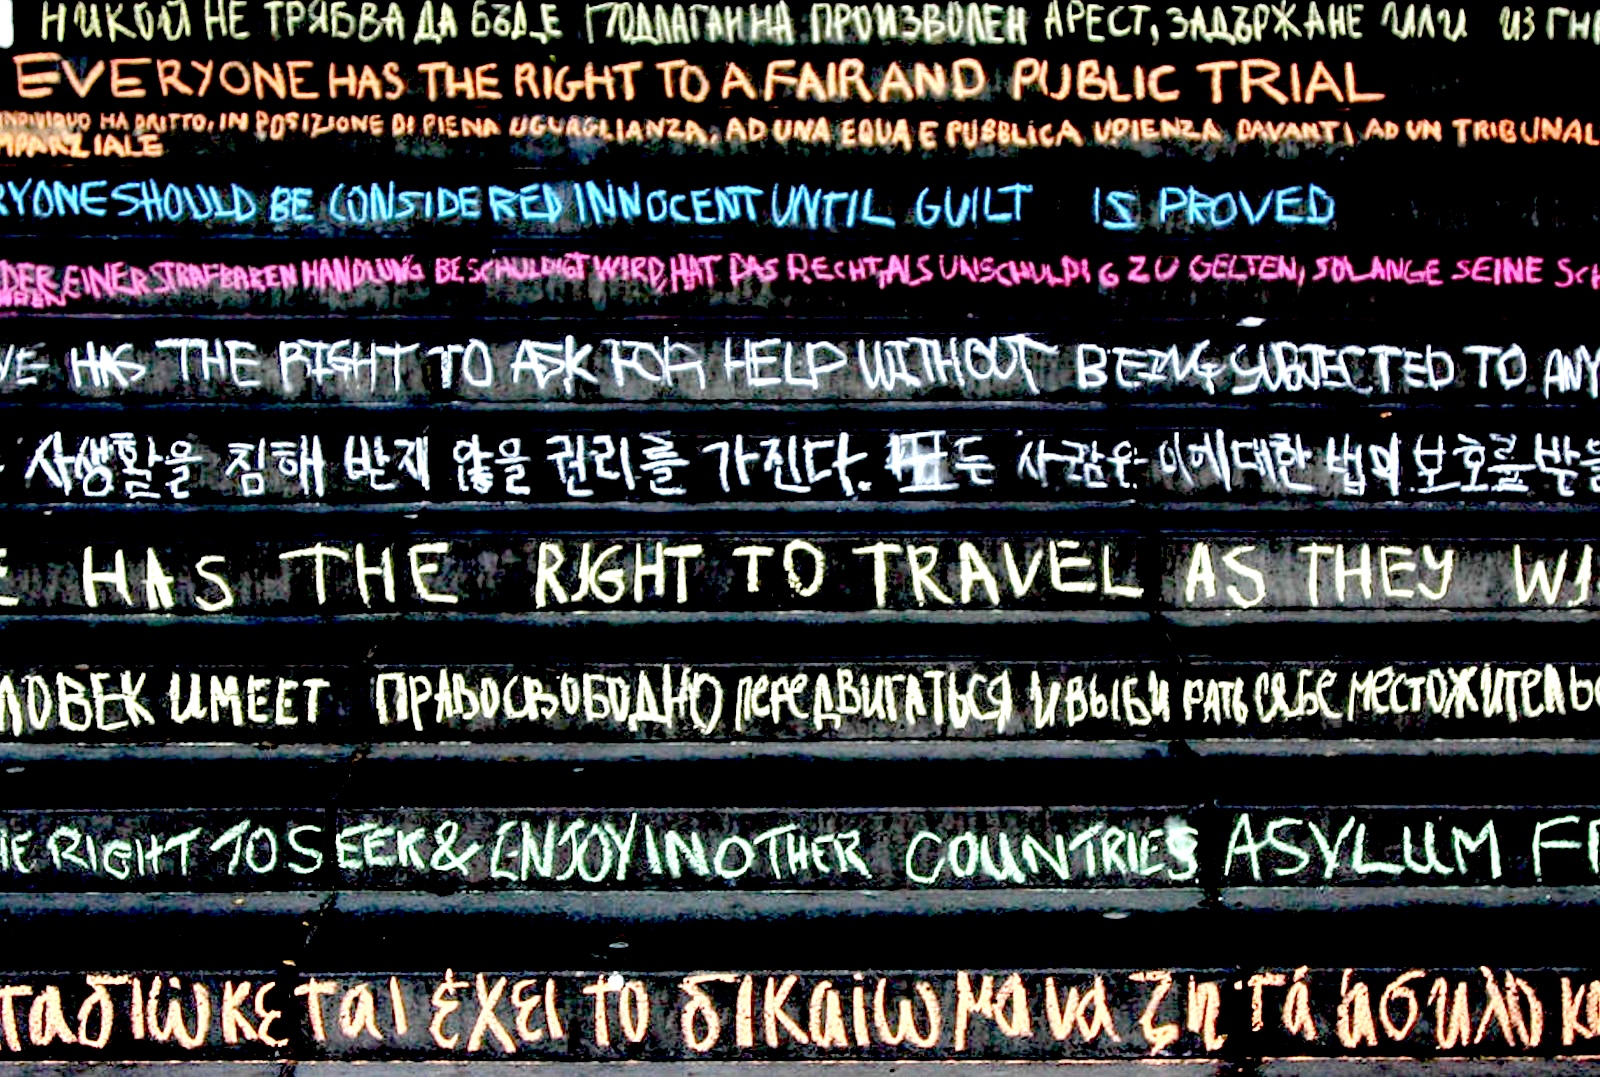 НИКОЙ НЕ ТРЯБВА ДА БЪДЕ ПОДЛАГАН НА ПРОИЗВОЛЕН АРЕСТ, ЗАДЪРЖАНЕ ИЛИ ИЗГН
EVERYONE HAS THE RIGHT TO A FAIR AND PUBLIC TRIAL
INDIVIDUO HA DRITTO, IN POSIZIONE DI PIENA UGUAGLIANZA, AD UNA EQUA E PUBBLICA UDIENZA DAVANTI AD UN TRIBUNAL
MPARZIALE
RYONE SHOULD BE CONSIDERED INNOCENT UNTIL GUILT IS PROVED
DER EINER STRAFBAREN HANDLUNG BESCHULDIGT WIRD, HAT DAS RECHT, ALS UNSCHULDIG ZU GELTEN, SOLANGE SEINE SCH
VE HAS THE RIGHT TO ASK FOR HELP WITHOUT BEING SUBJECTED TO ANY
사생활을 침해 받재 않을 권리를 가진다. 모든 사람은 이에대한 법의 보호를 받을
E HAS THE RIGHT TO TRAVEL AS THEY WI
ЛОВЕК ИМЕЕТ ПРАВО СВОБОДНО ПЕРЕДВИГАТЬСЯ И ВЫБИРАТЬ СЕБЕ МЕСТОЖИТЕЛЬС
HE RIGHT TO SEEK & ENJOY IN OTHER COUNTRIES ASYLUM FR
ταδιώκεται έχει το δικαίωμα να ζητά άσυλο κα